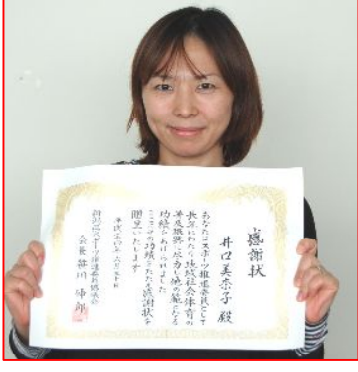 感謝状
井口美奈子 殿
あなたはスポーツ推進委員として
長年にわたり地域社会体育の
普及振興に尽力し他の範となる
功績をあげられました
ここにその功績をたたえ感謝状を
贈呈いたします
会長 笹川